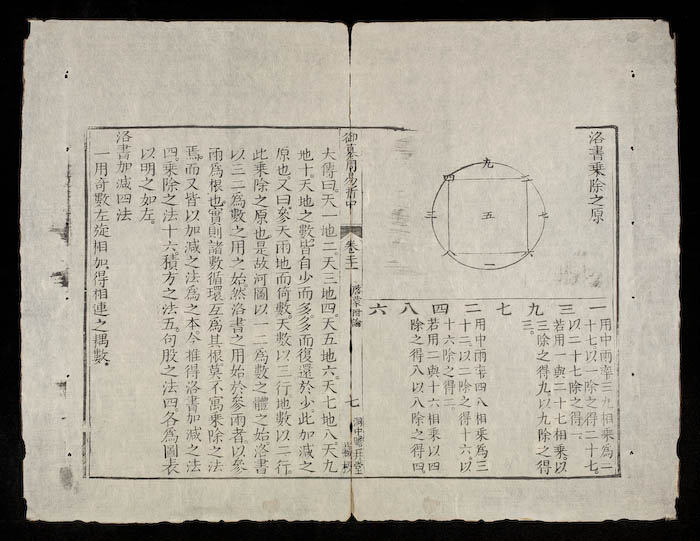 洛書乘除之原
九
四 二
三 五 七
一
一三九七二四八六
用中兩率三九相乘為二
十七以一除之得二十七。
以二十七除之得一。
若用一與二十七相乘。以
三除之得九以九除之得
三。
用中兩率四八相乘為三
十二以二除之得十六。以
十六除之得二。
若用二與十六相乘以四
除之得八以八除之得四。
御纂周易折中
啟蒙附論
七
大傳曰。天一地二天三地四。天五地六。天七地八天九
地十。天地之數皆自少而多。多而復還於少。此加減之
原也。又曰。參天兩地而倚數。天數以三行。地數以二行。
此乘除之原也。是故河圖以一二為數之體之始。洛書
以三二為數之用之始。然洛書之用始於參兩者以參
兩為根也。實則諸數循環互為其根莫不寓乘除之法
焉。而又皆以加減之法為之本。今推得洛書加減之法
四。乘除之法十六。積方之法五。句股之法四各為圖表
以明之如左。
洛書加減四法
一用奇數左旋相加得相連之耦數。